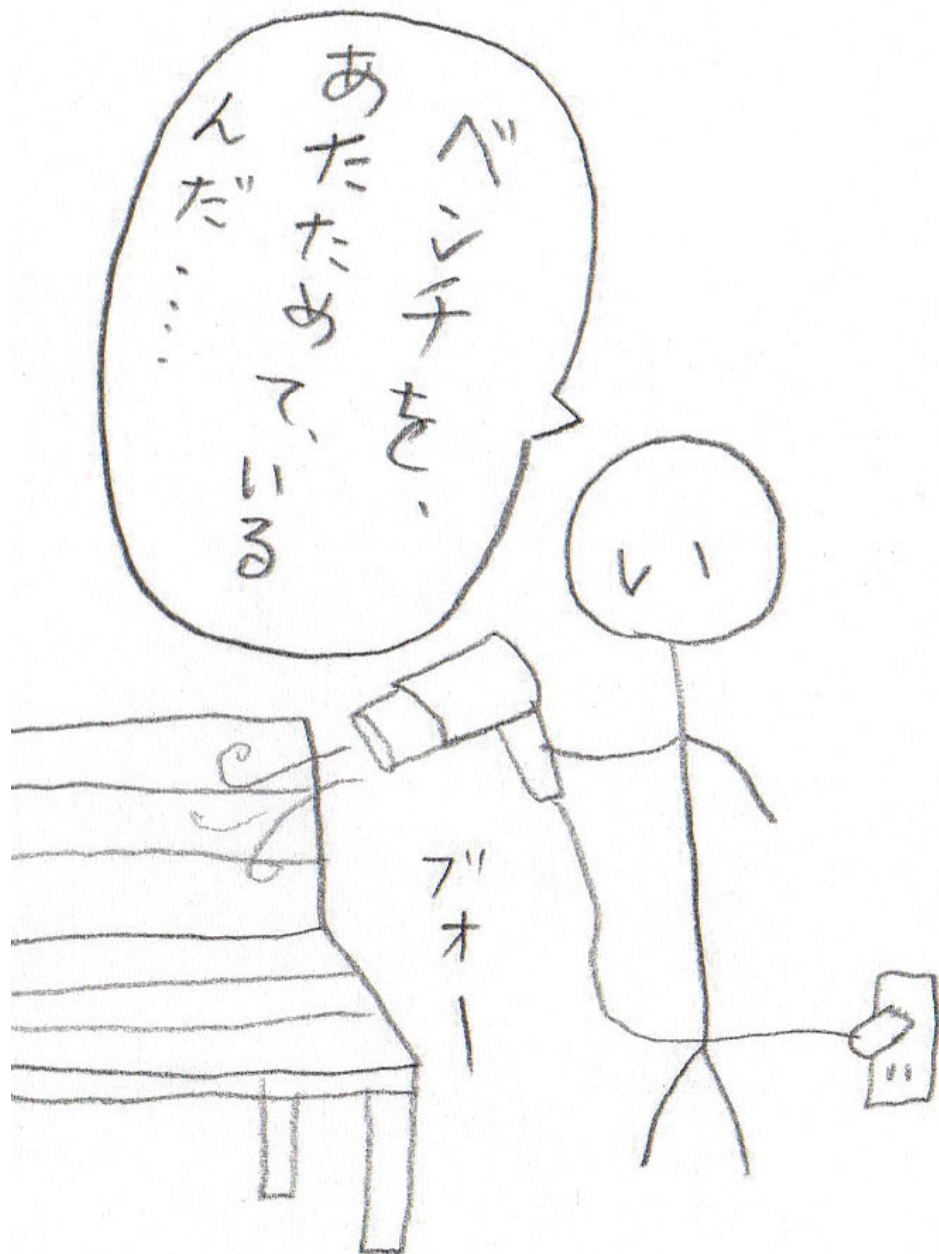 ベンチを、
あたためて、いる
んだ…
ブォー